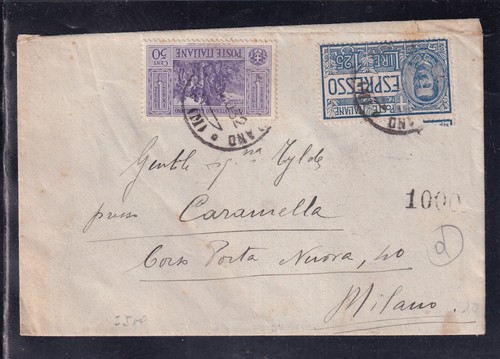 POSTE ITALIANE
CENT 50
LIRE 1,25
ESPRESSO
POSTE ITALIANE
ANO (MI)
ANO
Gentile sig.na Tylde
presso Caramella
1000
d
Corso Porta Nuova, 40
Milano